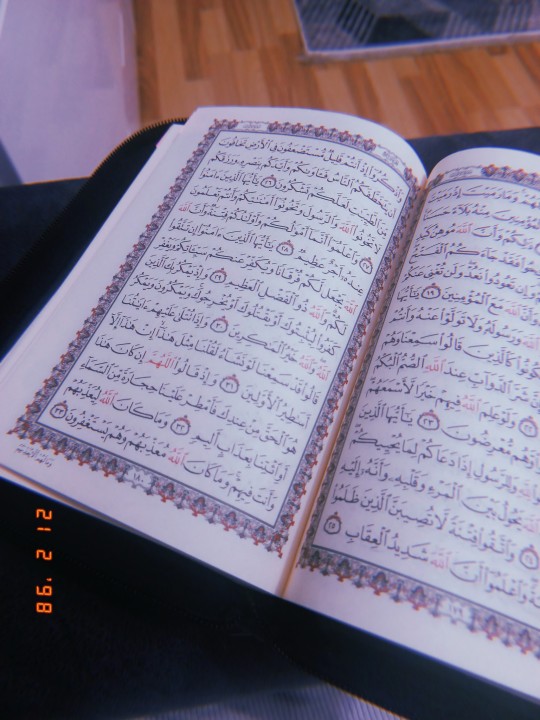 وَمَا رَمَيْتَ إِذْ رَمَيْتَ
مِنْهُ بَلَآءً
وَأَنَّ ٱللَّهَ مُوهِنُ
فَقَدْ جَآءَكُمُ
تَعُودُوا۟ نَعُدْ وَلَن تُغْنِىَ
ٱللَّهَ مَعَ ٱلْمُؤْمِنِينَ ١٩ يَٰٓأَيُّهَا
ٱللَّهَ وَرَسُولَهُۥ وَلَا تَوَلَّوْا۟ عَنْهُ وَأَنتُمْ
تَكُونُوا۟ كَٱلَّذِينَ قَالُوا۟ سَمِعْنَا وَهُمْ
شَرَّ ٱلدَّوَآبِّ عِندَ ٱللَّهِ ٱلصُّمُّ ٱلْبُكْمُ
٢٢ وَلَوْ عَلِمَ ٱللَّهُ فِيهِمْ خَيْرًا لَّأَسْمَعَهُمْ
وَّهُم مُّعْرِضُونَ ٢٣ يَٰٓأَيُّهَا ٱلَّذِينَ
وَلِلرَّسُولِ إِذَا دَعَاكُمْ لِمَا يُحْيِيكُمْ
ٱللَّهَ يَحُولُ بَيْنَ ٱلْمَرْءِ وَقَلْبِهِۦ وَأَنَّهُۥٓ إِلَيْهِ
٢٤ وَٱتَّقُوا۟ فِتْنَةً لَّا تُصِيبَنَّ ٱلَّذِينَ ظَلَمُوا۟
وَٱعْلَمُوٓا۟ أَنَّ ٱللَّهَ شَدِيدُ ٱلْعِقَابِ ٢٥
١٧٩
وَٱذْكُرُوٓا۟ إِذْ أَنتُمْ قَلِيلٌ مُّسْتَضْعَفُونَ فِى ٱلْأَرْضِ تَخَافُونَ
أَن يَتَخَطَّفَكُمُ ٱلنَّاسُ فَـَٔاوَىٰكُمْ وَأَيَّدَكُم بِنَصْرِهِۦ وَرَزَقَكُم
مِّنَ ٱلطَّيِّبَٰتِ لَعَلَّكُمْ تَشْكُرُونَ ٢٦ يَٰٓأَيُّهَا ٱلَّذِينَ ءَامَنُوا۟
لَا تَخُونُوا۟ ٱللَّهَ وَٱلرَّسُولَ وَتَخُونُوٓا۟ أَمَٰنَٰتِكُمْ وَأَنتُمْ تَعْلَمُونَ
٢٧ وَٱعْلَمُوٓا۟ أَنَّمَآ أَمْوَٰلُكُمْ وَأَوْلَٰدُكُمْ فِتْنَةٌ وَأَنَّ ٱللَّهَ
عِندَهُۥٓ أَجْرٌ عَظِيمٌ ٢٨ يَٰٓأَيُّهَا ٱلَّذِينَ ءَامَنُوٓا۟ إِن تَتَّقُوا۟
ٱللَّهَ يَجْعَل لَّكُمْ فُرْقَانًا وَيُكَفِّرْ عَنكُمْ سَيِّـَٔاتِكُمْ وَيَغْفِرْ
لَكُمْ وَٱللَّهُ ذُو ٱلْفَضْلِ ٱلْعَظِيمِ ٢٩ وَإِذْ يَمْكُرُ بِكَ ٱلَّذِينَ
كَفَرُوا۟ لِيُثْبِتُوكَ أَوْ يَقْتُلُوكَ أَوْ يُخْرِجُوكَ وَيَمْكُرُونَ وَيَمْكُرُ
ٱللَّهُ وَٱللَّهُ خَيْرُ ٱلْمَٰكِرِينَ ٣٠ وَإِذَا تُتْلَىٰ عَلَيْهِمْ ءَايَٰتُنَا
قَالُوا۟ قَدْ سَمِعْنَا لَوْ نَشَآءُ لَقُلْنَا مِثْلَ هَٰذَآ إِنْ هَٰذَآ إِلَّآ
أَسَٰطِيرُ ٱلْأَوَّلِينَ ٣١ وَإِذْ قَالُوا۟ ٱللَّهُمَّ إِن كَانَ هَٰذَا
هُوَ ٱلْحَقَّ مِنْ عِندِكَ فَأَمْطِرْ عَلَيْنَا حِجَارَةً مِّنَ ٱلسَّمَآءِ
أَوِ ٱئْتِنَا بِعَذَابٍ أَلِيمٍ ٣٢ وَمَا كَانَ ٱللَّهُ لِيُعَذِّبَهُمْ
وَأَنتَ فِيهِمْ وَمَا كَانَ ٱللَّهُ مُعَذِّبَهُمْ وَهُمْ يَسْتَغْفِرُونَ ٣٣
١٨٠
12 2 '98